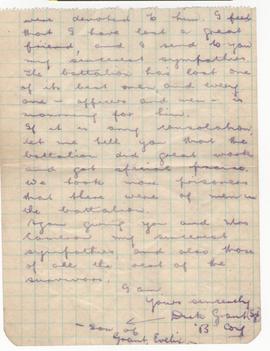 were devoted to him. I feel
that I have lost a great
friend, and I send to you
my sincerest sympathies.
The battalion has lost one
of its best men, and every
one - officers and men - is
mourning for him.
If it is any consolation,
let me tell you that the
battalion did great work
and got special praise.
We took more prisoners
than there were of men in
the battalion.
Again giving you and
my sincerest
sympathies and also those
of all the rest of the
survivors.
I am
Yours sincerely
Dick Grant
"B" Coy
- son of
Grant,